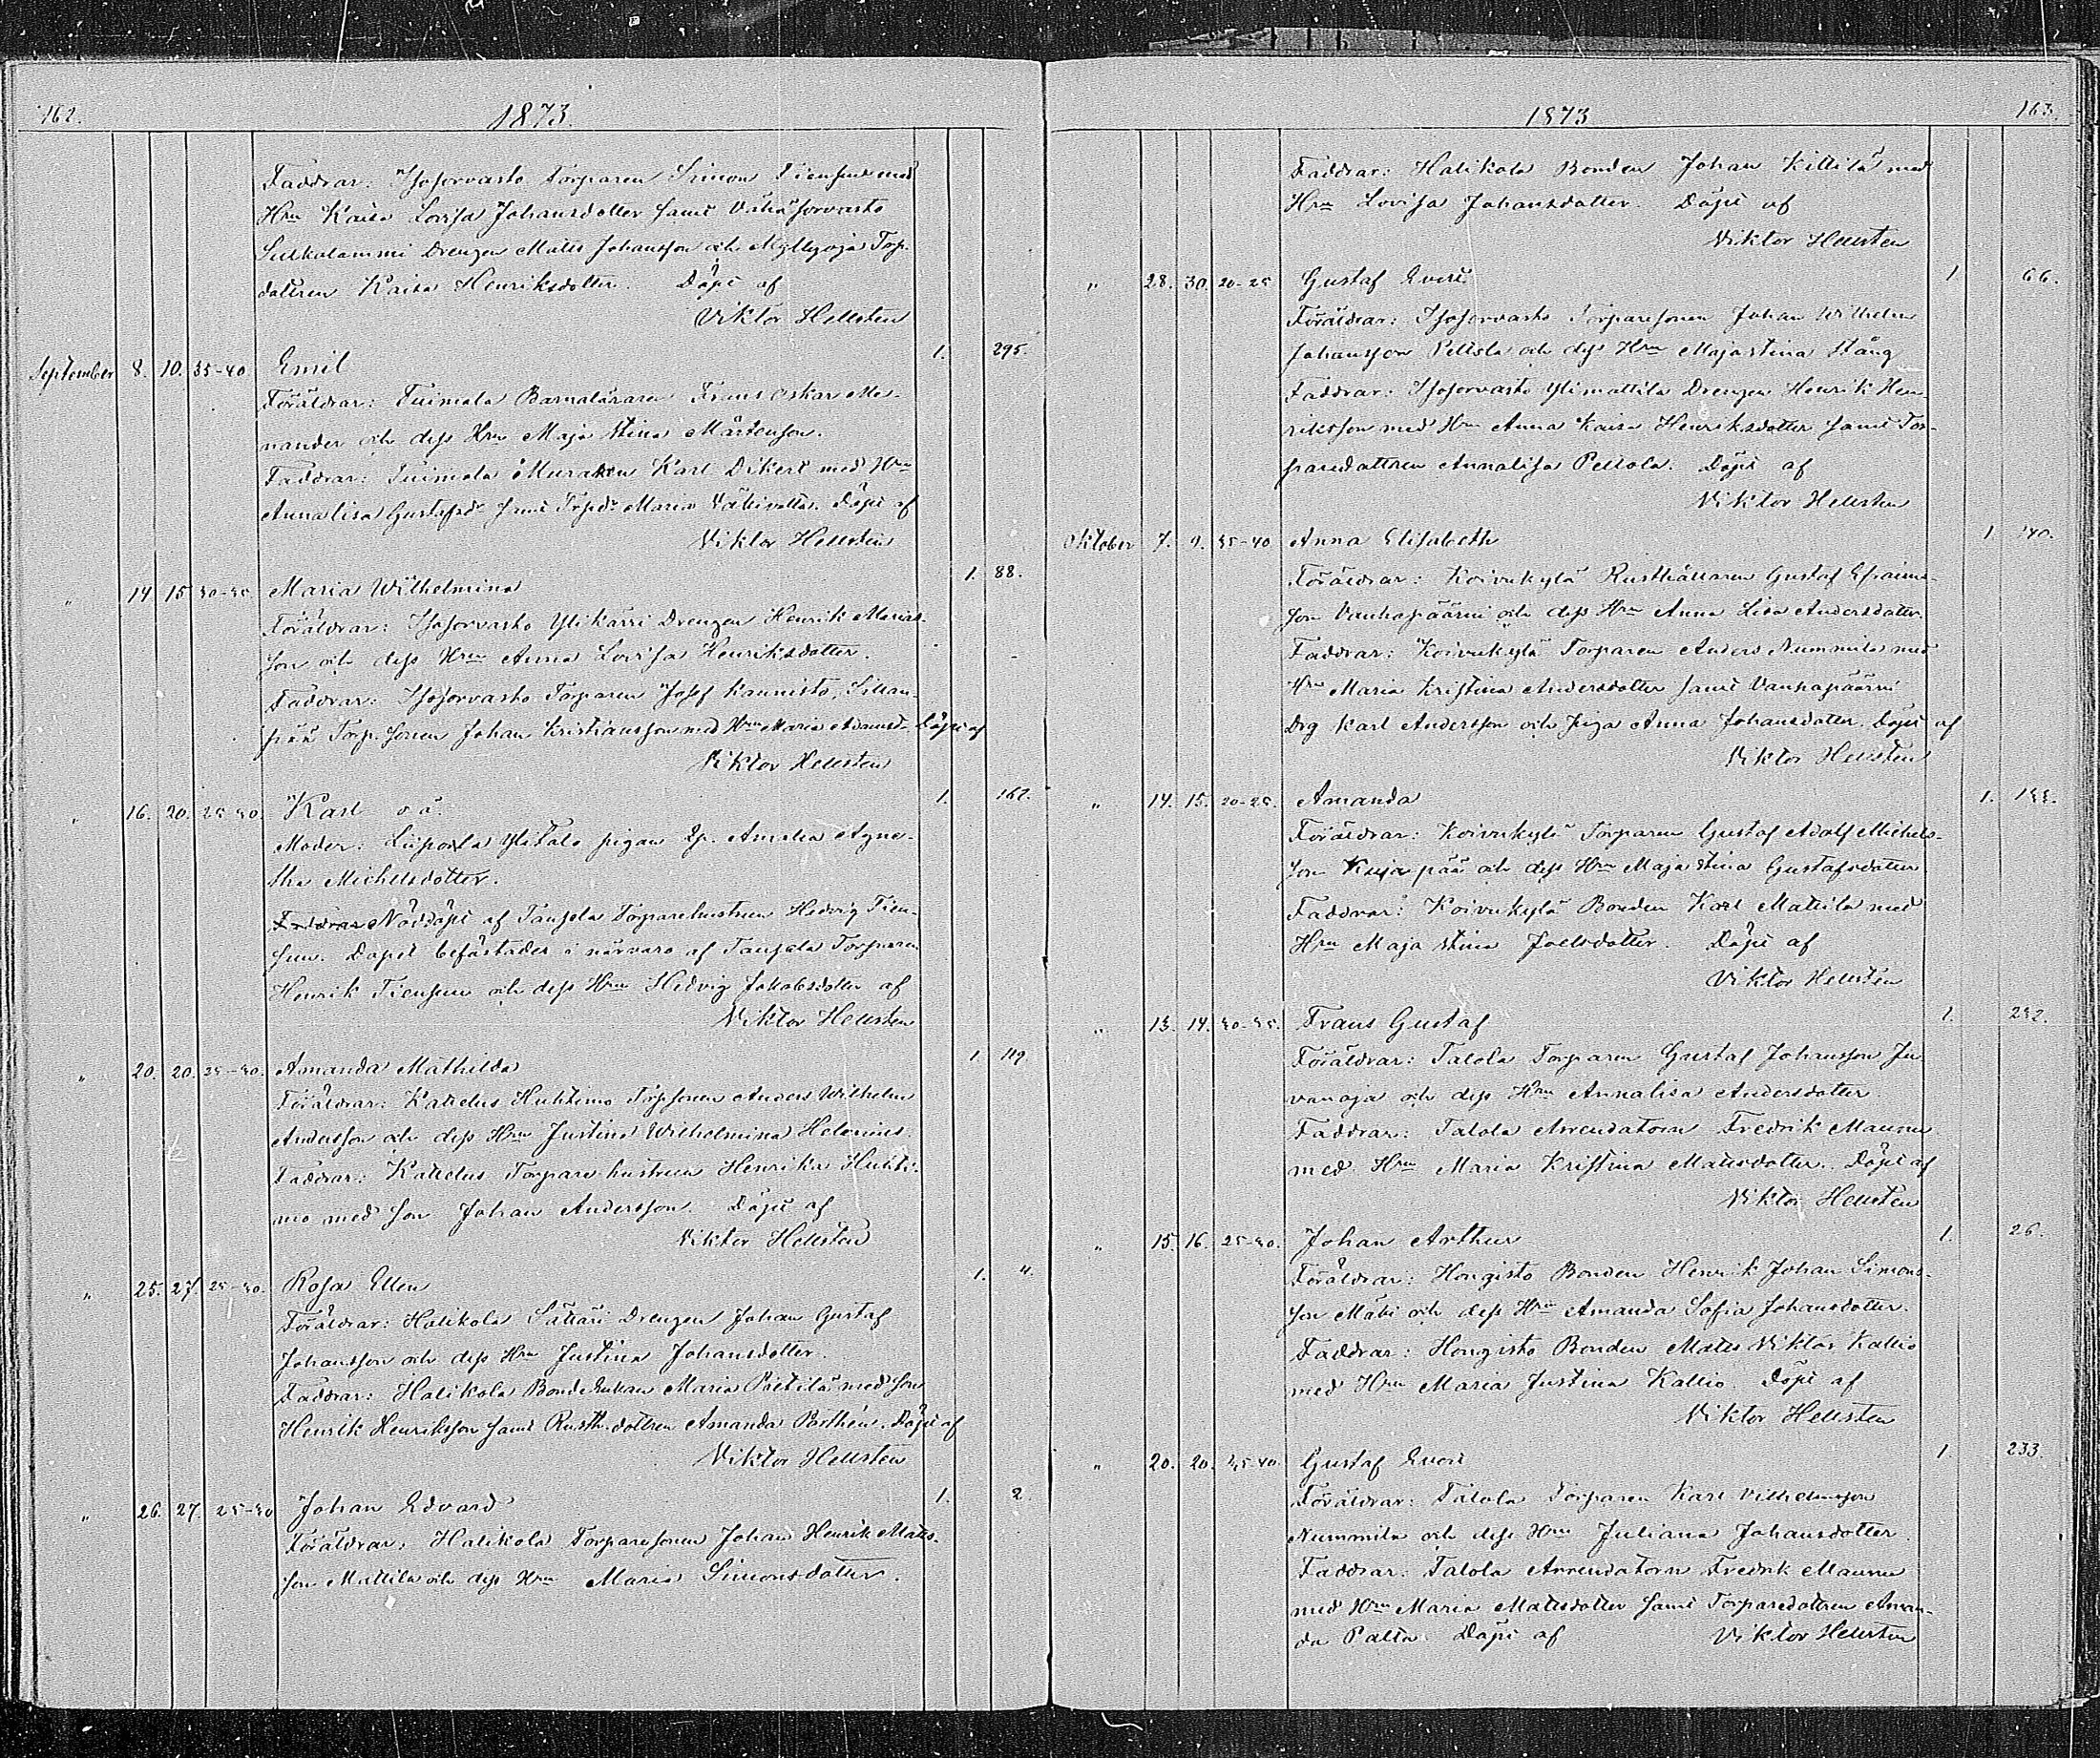 162.
1873.
Faddrar: Isosorvasto Torparen Simon Tiensuu med
Hru Kaisa Lovisa Johansdotter samt Vähäsorvasto
Sulkulammi Drengen Matts Johansson och Myllyoja Torp.
dottren Kaisa Henriksdotter. Döpt af
Viktor Hellsten
September 8. 10. 35-40 Emil 1. 295.
Föräldrar: Tuimala Barnaläraren Frans Oskar Me-
nander och dess Hru Maja Stina Mårtenson.
Faddrar: Tuimala Muraren Karl Dikert med Hru
Annalisa Gustafsdr samt Torpdr Maria Döpt af
Viktor Hellsten
" 14 15 30-35. Maria Wilhelmina 1. 88.
Föräldrar: Isosorvasto Ylikärri Drengen Henrik Matts-
son och dess Hru Anna Lovisa Henriksdotter.
Faddrar: Isosorvasto Torparen Josef Kannisto, Sillan-
pää Torp. sonen Johan Kristiansson med Hru Maria Adamsd. Döpt af
Viktor Hellsten
" 16. 20. 25-30 Karl o.ä. 1. 162.
Moder: Liipola Ylitalo pigan Amalia Agne-
tha Michelsdotter.
Faddrar Nöddöpt af Tanjela Torparehustrun Hedvig Tien-
suu. Dopet befästades i närvaro af Tanjela Torparen
Henrik Tiensuu och dess Hru Hedvig Jakobsdotter af
Viktor Hellsten
" 20. 20. 25-30. Amanda Mathilda 1. 119.
Föräldrar: Katelus Huhtimo Torpsonen Anders Wilhelm
Andersson och dess Hru Justina Wilhelmina Helenius.
Faddrar: Katelus Torpare hustrun Henrika Huhti-
mo med son Johan Andersson. Döpt af
Viktor Hellsten
" 25. 27. 25-30. Rosa Ellen 1. 4.
Föräldrar: Halikola Sättäri Drengen Johan Gustaf
Johansson och dess Hru Justina Johansdotter.
Faddrar: Halikola Bonde Enkan Maria Pietilä med son
Henrik Henriksson samt Rusth. dottren Amanda Porthén. Döpt af
Viktor Hellsten
" 26. 27. 25-30 Johan Edvard 1. 2.
Föräldrar: Halikola Torparesonen Johan Henrik Matts-
son Mattila och dess Hru Maria Simonsdotter.
1873
163.
Faddrar: Halikola Bonden Johan Killilä med
Hru Lovisa Johansdotter. Döpt af
Viktor Hellsten
" 28. 30. 20-25 Gustaf Evert 1 66.
Föräldrar: Isosorvasto Torparesonen Johan Wilhelm
Johansson Peltola och dess Hru Maja Stina Stång
Faddrar: Isosorvasto Ylimattila Drengen Henrik Hen-
riksson med Hru Anna Kaisa Henriksdotter samt Tor-
paredottren Annalisa Peltola. Döpt af
Viktor Hellsten
Oktober 7. 9. 35-40 Anna Elisabeth 1 140.
Föräldrar: Koivukylä Rusthållaren Gustaf Efraims-
son Vanhapäärni och dess Hru Anna Lisa Andersdotter.
Faddrar: Koivukylä Torparen Anders Nummila med
Hru Maria Kristina Andersdotter samt Vanhapäärni
Drg Karl Andersson och Piga Anna Johansdotter. Döpt af
Viktor Hellsten
" 14. 15. 20-25. Amanda 1.
Föräldrar: Koivukylä Torparen Gustaf Adolf Michels-
son Kujapää och dess Hru Maja Stina Gustafsdotter
Faddrar: Koivukylä Bonden Karl Mattila med
Hru Maja Stina Joelsdotter. Döpt af
Viktor Hellsten
" 13. 14. 30-35. Frans Gustaf 1. 232.
Föräldrar: Talola Torparen Gustaf Johansson Ju-
vanoja och dess Hru Annalisa Andersdotter
Faddrar: Talola Arrendatorn Fredrik Maunu
med Hru Maria Kristina Mattsdotter. Döpt af
Viktor Hellsten
" 15. 16. 25-30. Johan Arthur 1. 26.
Föräldrar: Hongisto Bonden Henrik Johan Simons-
son Mäki och dess Hru Amanda Sofia Johansdotter.
Faddrar: Hongisto Bonden Matts Viktor Kallio
med Hru Maria Justina Kallio. Döpt af
Viktor Hellsten
" 20. 20. 35-40. Gustaf Evert 1. 233.
Föräldrar: Talola Torparen Karl Vilhelmsson
Nummila och dess Hru Juliana Johansdotter.
Faddrar: Talola Arrendatorn Fredrik Maunu
med Hru Maria Mattsdotter samt Torparedottren Aman-
da Palta. Döpt af Viktor Hellsten